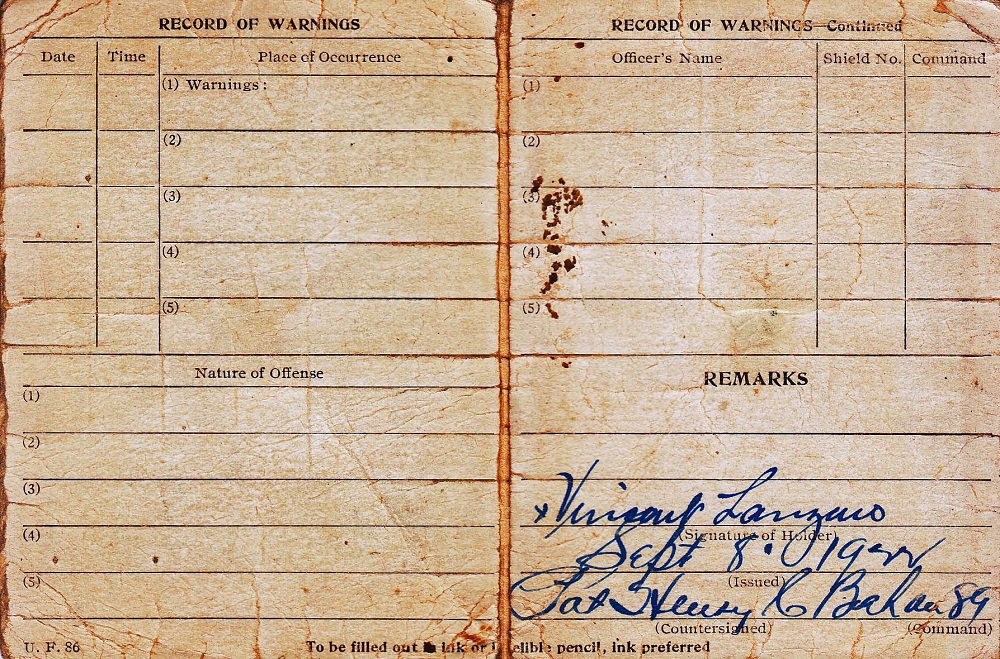 RECORD OF WARNINGS
Date Time Place of Occurrence
(1) Warnings:
(2)
(3)
(4)
(5)
Nature of Offense
(1)
(2)
(3)
(4)
(5)
U. F. 86
RECORD OF WARNINGS—Continued
Officer's Name Shield No. Command
(1)
(2)
(3)
(4)
(5)
REMARKS
x Vincent
(Signature of Holder)
Sept 8. 1922
(Issued)
Pat Henry C 89
(Countersigned) (Command)
To be filled out in ink or indelible pencil, ink preferred